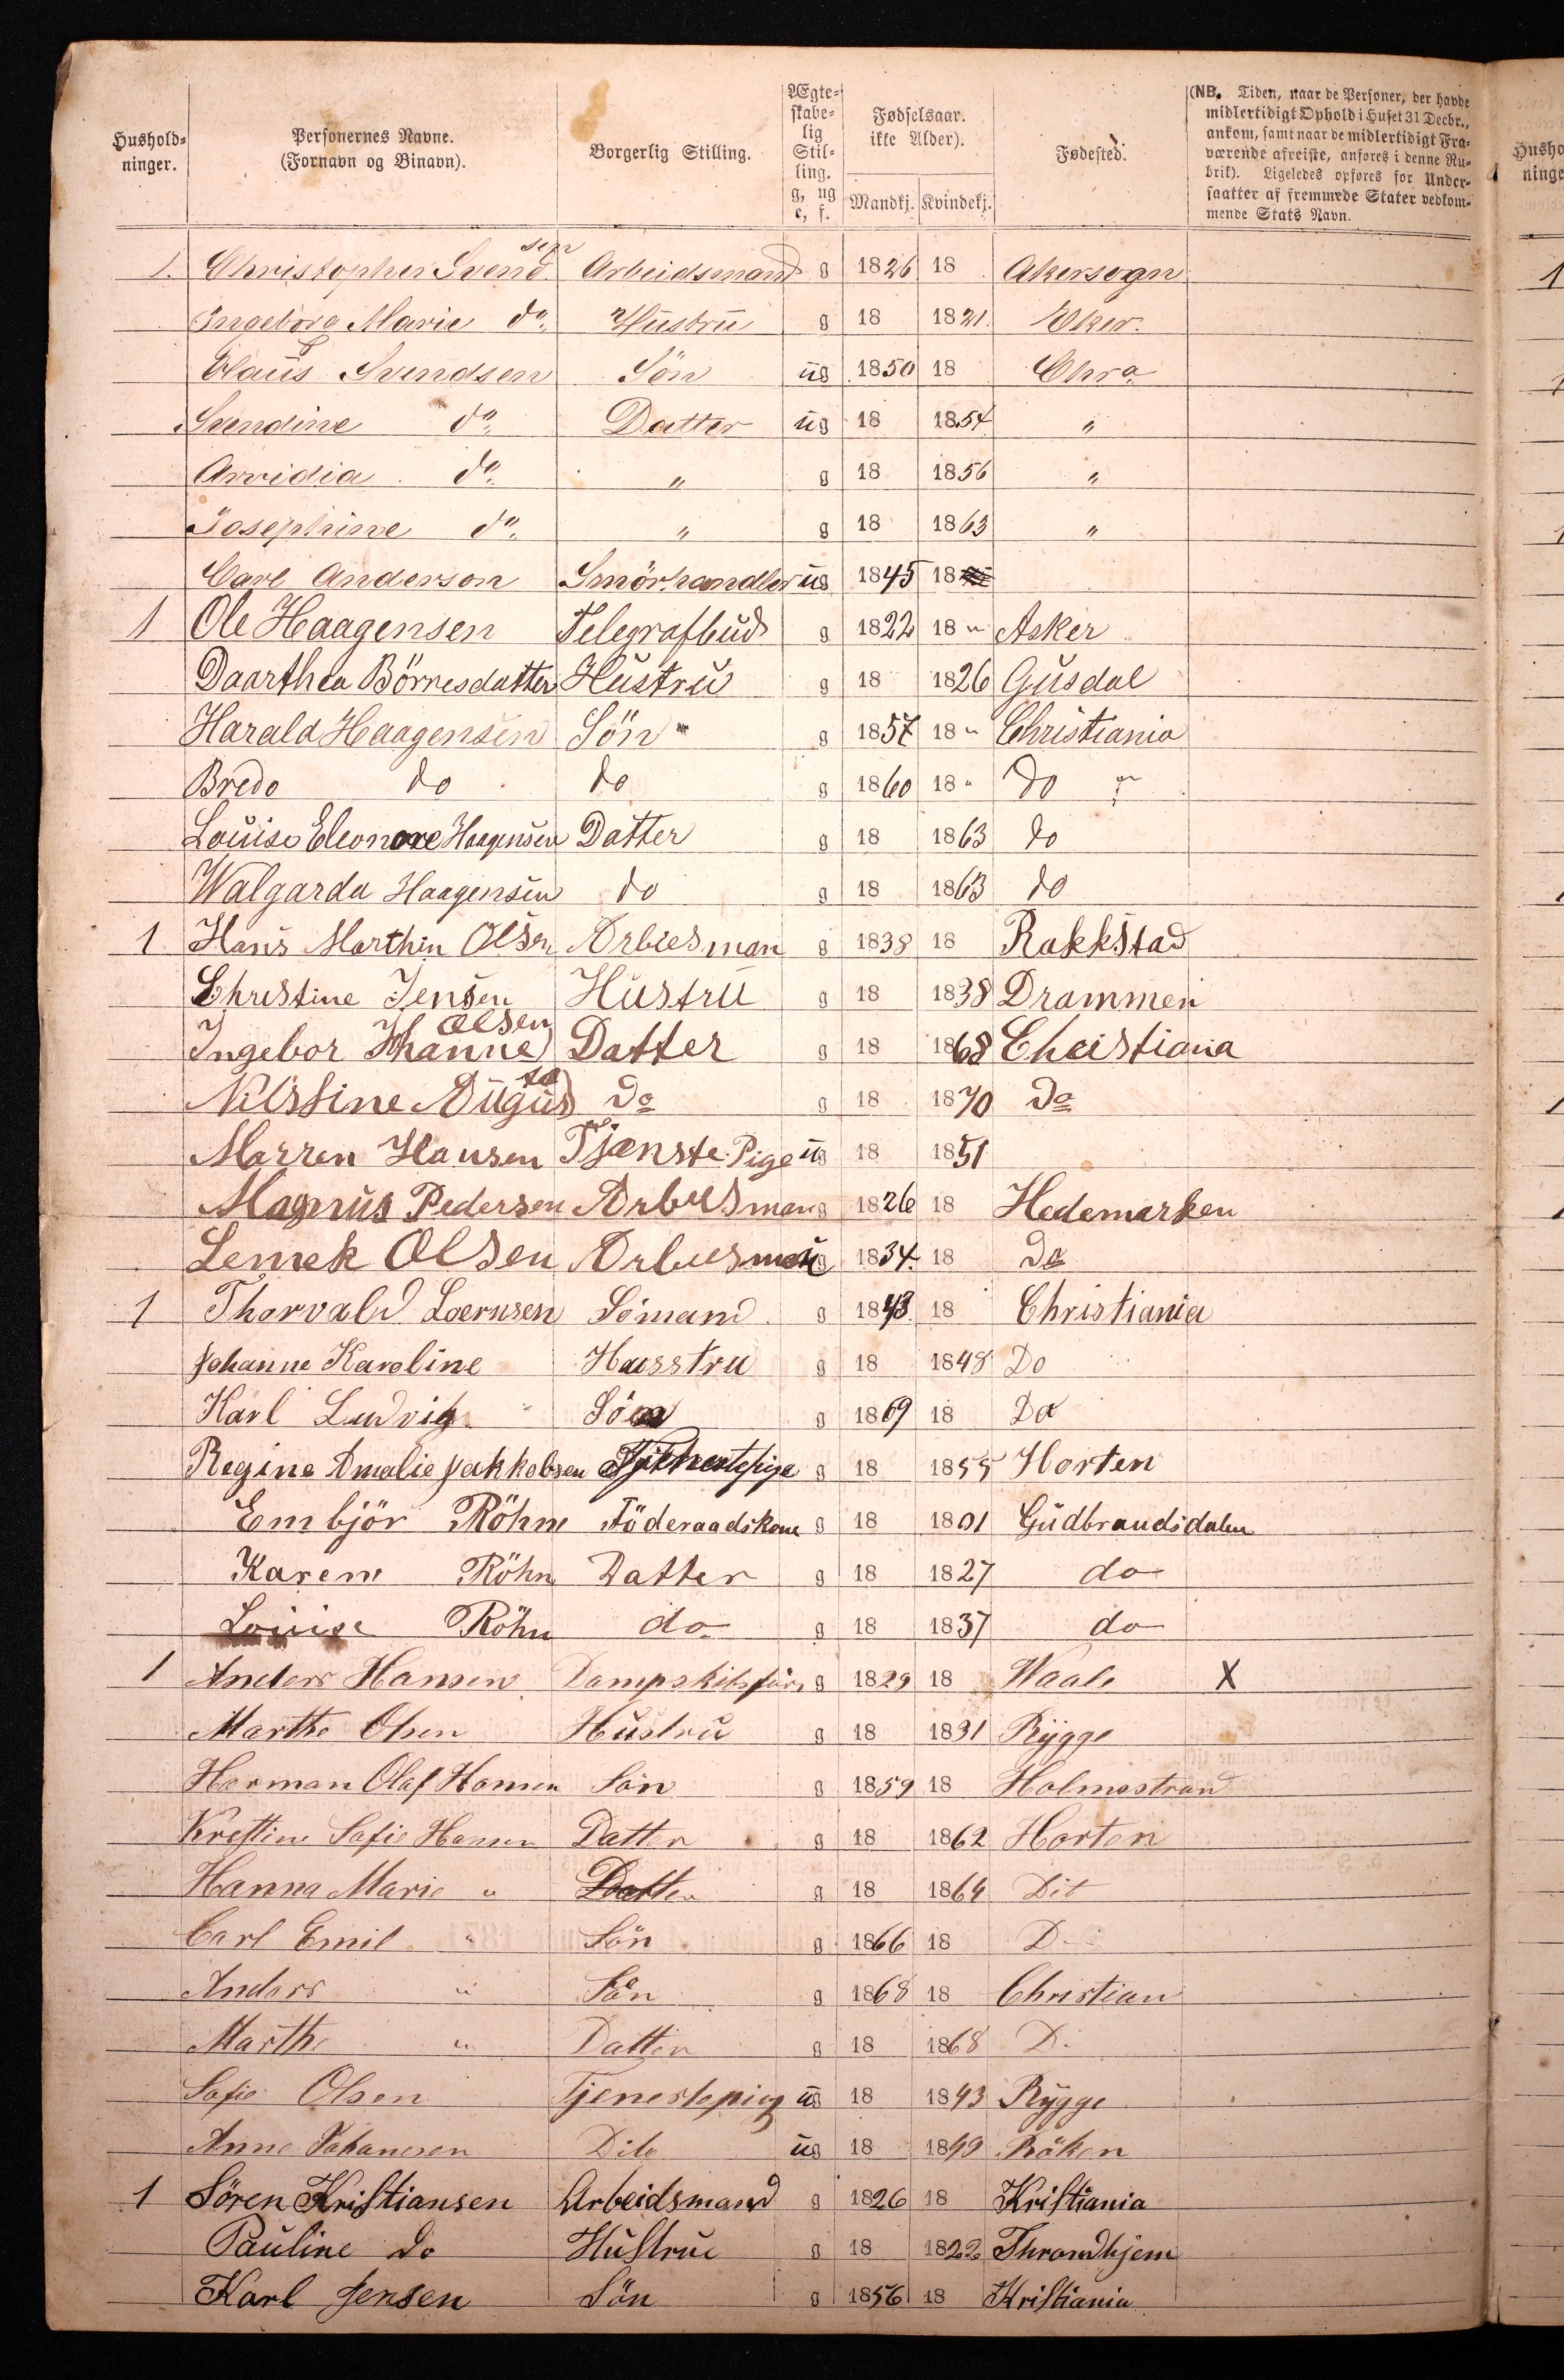 Hushold-
ninger.
Personernes Navne.
(Fornavn og Binavn).
Borgerlig Stilling.
Ægte-
skabe-
lig
Stil-
ling.
g, ug
e, f.
Fødselsaar.
ikke Alder).
Mandkj. Kvindekj.
Fødested.
(NB. Tiden, naar de Personer, der havde
midlertidigt Ophold i Huset 31 Decbr.,
ankom, samt naar de midlertidigt Fra-
værende afreiste, anføres i denne Ru-
brik). Ligeledes opføres for Under-
saatter af fremmede Stater vedkom-
mende Stats Navn.
1. Christopher Svendsen Arbeidsmand g 1826 18 Akersogn
Ingeborg Marie do. Hustru g 18 1821. Eker.
Olaus Svendsen Sön ug 1850 18 Chra
Svendine do. Datter ug 18 1854 "
Arvidia do. " g 18 1856 "
Josephine do. " g 18 1863 "
Carl Anderson Smörhandler ug 1845 18
1 Ole Haagensen Telegrafbud g 1822 18 " Asker
Daarthea Börresdatter Hustru g 18 1826 Gusdal
Harald Haagensen Sön g 1857 18 " Christiania
Bredo do do g 1860 18 " do
Louise Eleonore Haagensen Datter g 18 1863 do
Walgarda Haagensen do g 18 1863 do
1 Hans Marthin Olsen Arbiesman g 1838 18 Rakkstad
Christine Jensen Hustru g 18 1838 Drammen
Ingebor Jhanne Olsen Datter g 18 1868 Cheistiana
Nilssine Augusta do g 18 1870 do
Marren Hansen Tjænste Pige ug 18 1851
Magnus Pedersen Arbiesman g 1826 18 Hedemarken
Lemek Olsen Arbiesman ug 1834. 18 do
1 Thorvald Loernsen Sömand g 1843. 18 Christiania
Johanne Karoline Husstru g 18 1848 Do
Karl Ludvig " Sön g 1869 18 Do
Regine Amalie Jakkobsen Tjehnestepige g 18 1855 Horten
Embjör Röhne Föderaadskone g 18 1801 Gudbrandsdalen
Karene Röhn Datter g 18 1827 do
Louise Röhn do g 18 1837 do
1 Anders Hansen Dampskibsförer g 1829 18 Waale X
Marthe Olsen Hustru g 18 1831 Rygge
Herman Olaf Hansen Sön g 1859 18 Holmestrand
Kristine Sofie Hansen Datter g 18 1862 Horten
Hanna Marie " Datter g 18 1864 Dit
Carl Emil " Sön g 1866 18 D.
Anders " Sön g 1868 18 Christian
Marthe " Datter g 18 1868 D.
Sofie Olsen Tjenestepieg ug 18 1843 Rygge
Anne Johanesen Dito ug 18 1849 Röken
1 Sören Kristiansen Arbeidsmand g 1826 18 Kristiania
Pauline do Hustrue g 18 1822 Throndhjem
Karl Jensen Sön g 1856 18 Kristiania